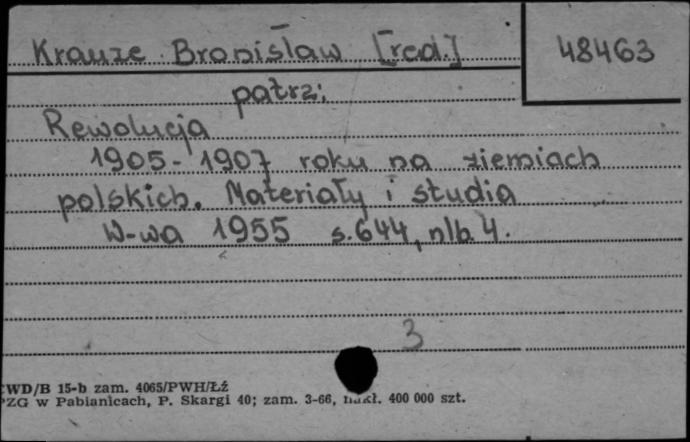 Krauze Bronisław [red.]
48463
patrz:
Rewolucja
1905-1907 roku na ziemiach
polskich. Materiały i studia
W-wa 1955 s.644, nlb.4.
3
WD/B 15-b zam. 4065/PWH/Łź
PZG w Pabianicach, P. Skargi 40; zam. 3-66, nakł. 400 000 szt.